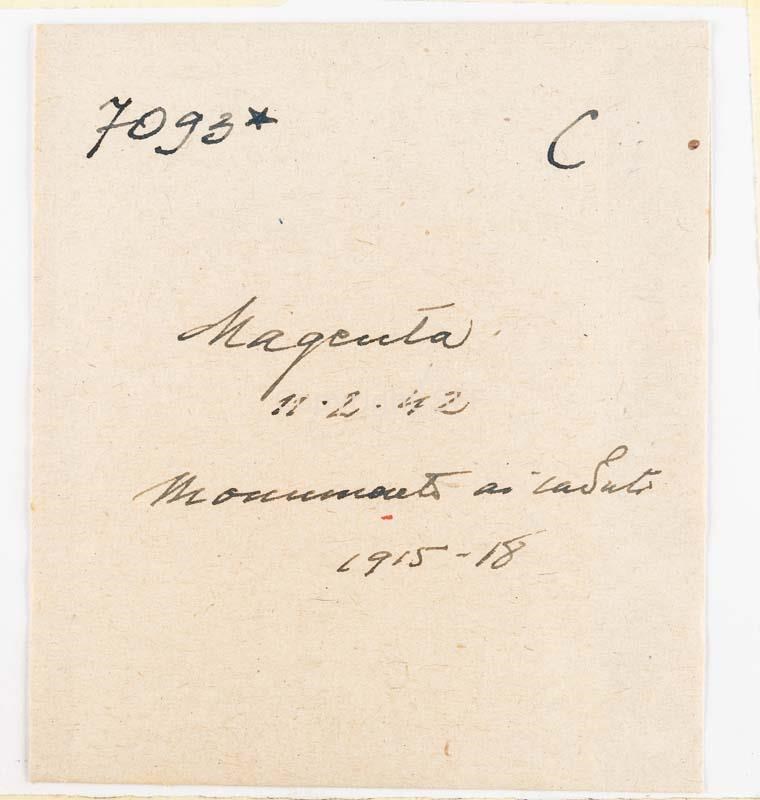 7093* C
Magenta
11.2.42
Monumento ai caduti
1915-18